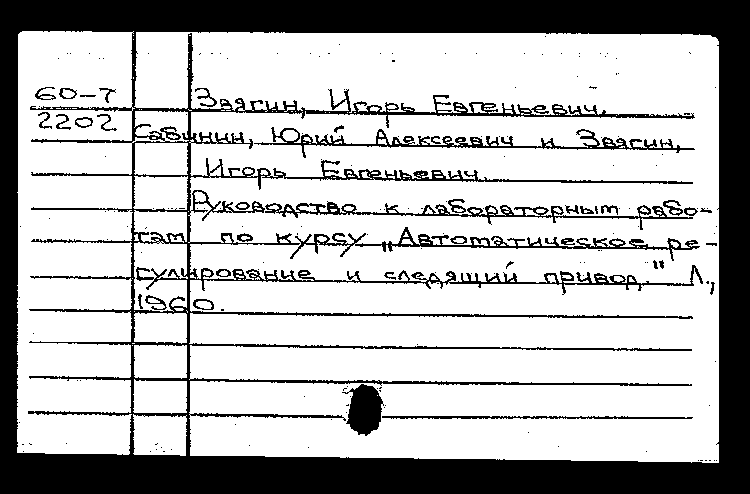 60-7 Звягин, Игорь Евгеньевич.
2202 Сабинин, Юрий Алексеевич и Звягин,
Игорь Евгеньевич.
Руководство к лабораторным рабо-
там по курсу „Автоматическое ре-
гулирование и следящий привод." Л.,
1960.